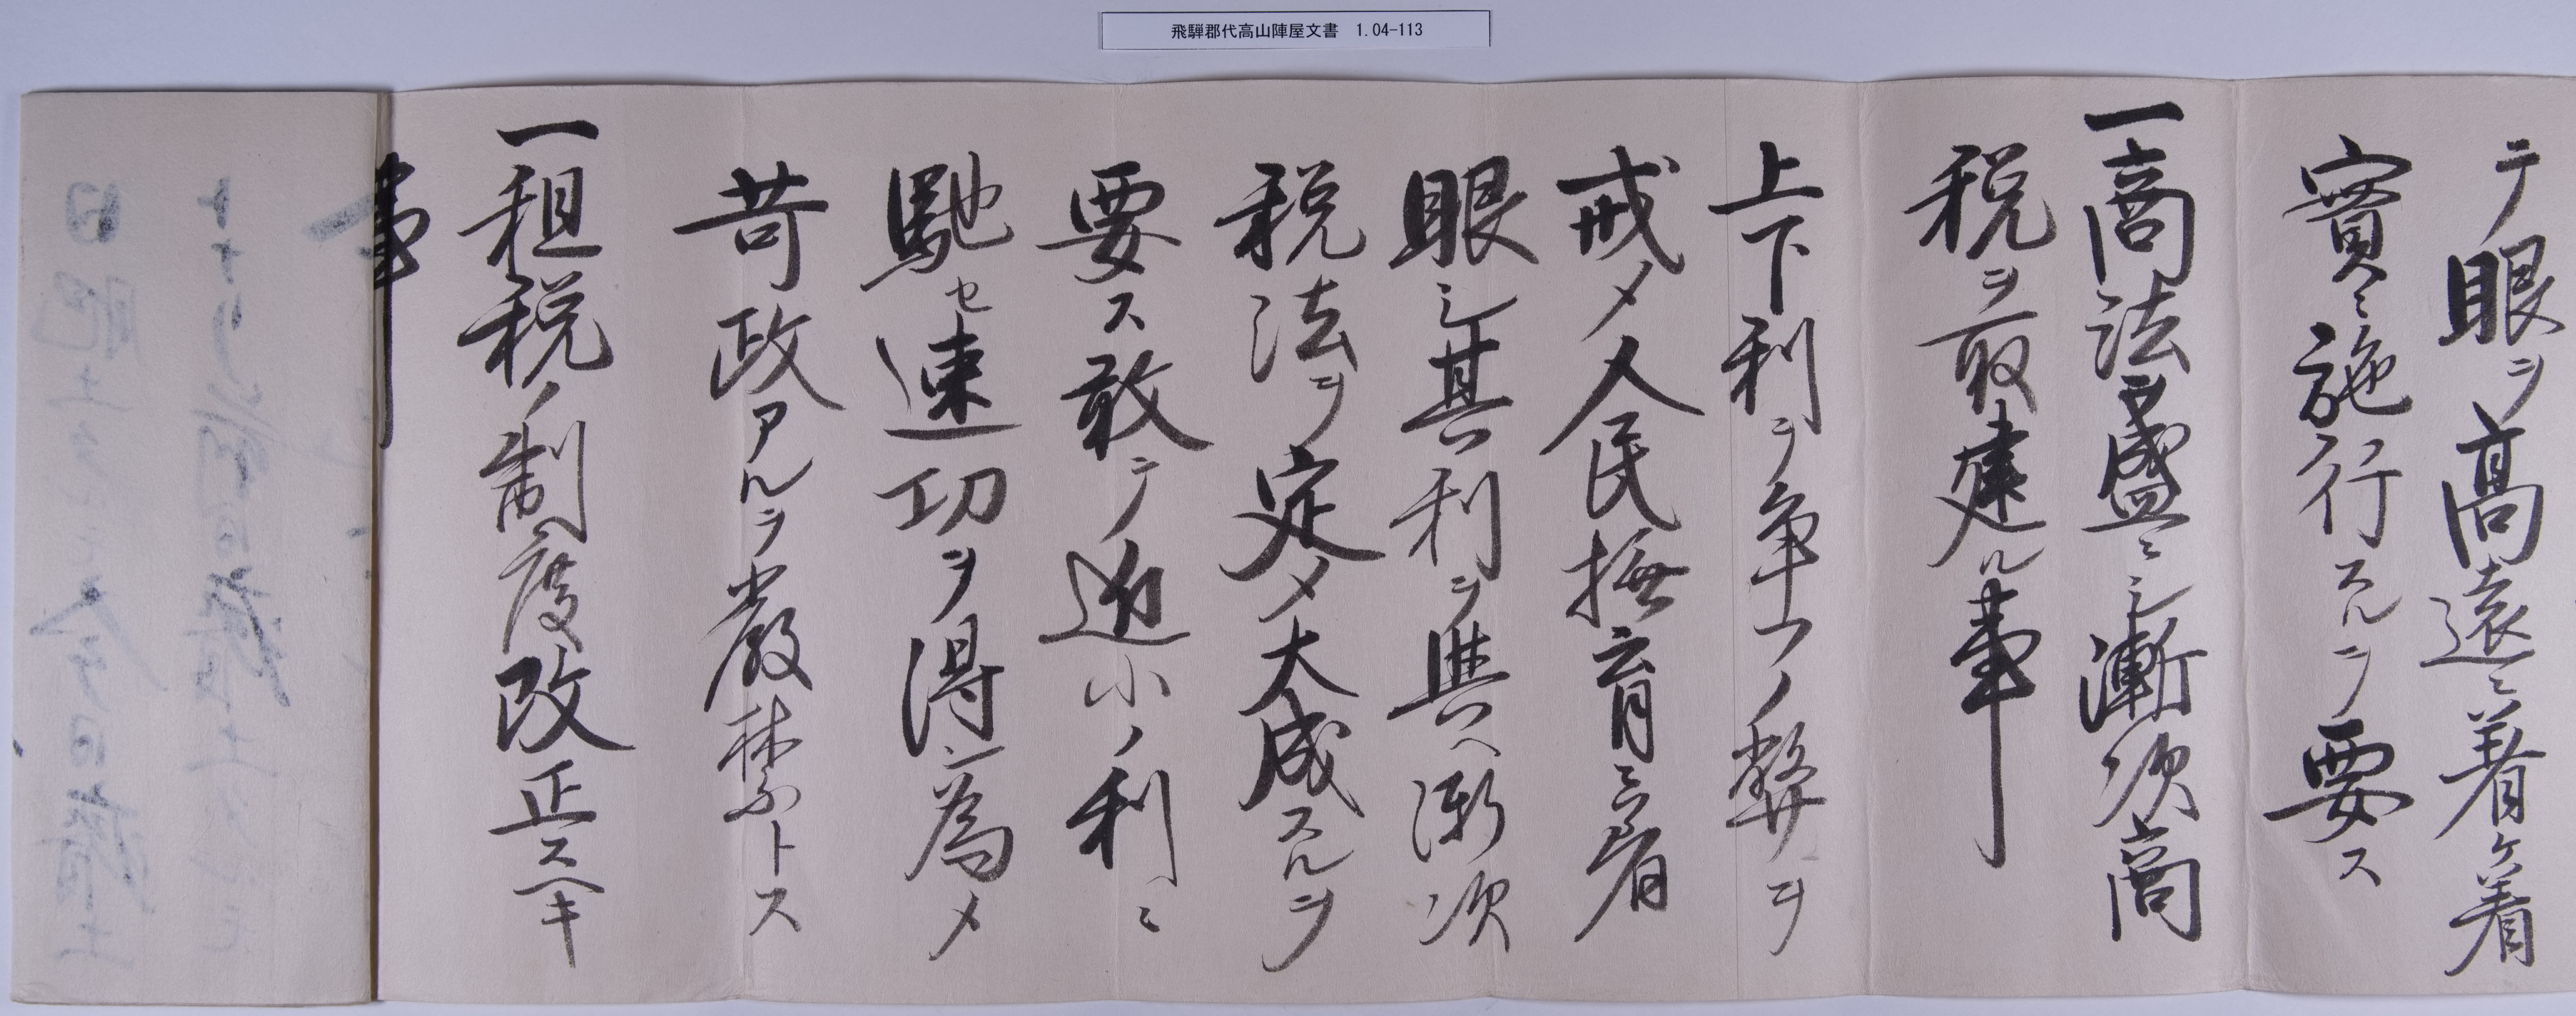 飛騨郡代高山陣屋文書 1.04-113
テ眼ヲ高遠ニ着ケ着
實ニ施行スルヲ要ス
一商法ヲ盛ニシ漸次商
税ヲ取建ル事
上下利ヲ争フノ弊ヲ
戒メ人民撫育ニ着
眼シ其利ヲ興ヘ漸次
税法ヲ定メ大成スルヲ
要ス敢テ近小ノ利ニ
馳セ速功ヲ得ン為メ
苛政アルヲ厳禁トス
一租税ノ制度改正スヘキ
事